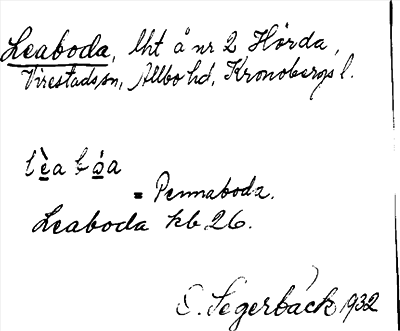 Leaboda, lht å nr 2 Hörda,
Virestads sn, Allbo hd, Kronobergs l.
lèa bóa
= Pennaboda.
Leaboda kb 26.
E. Segerbäck 1932